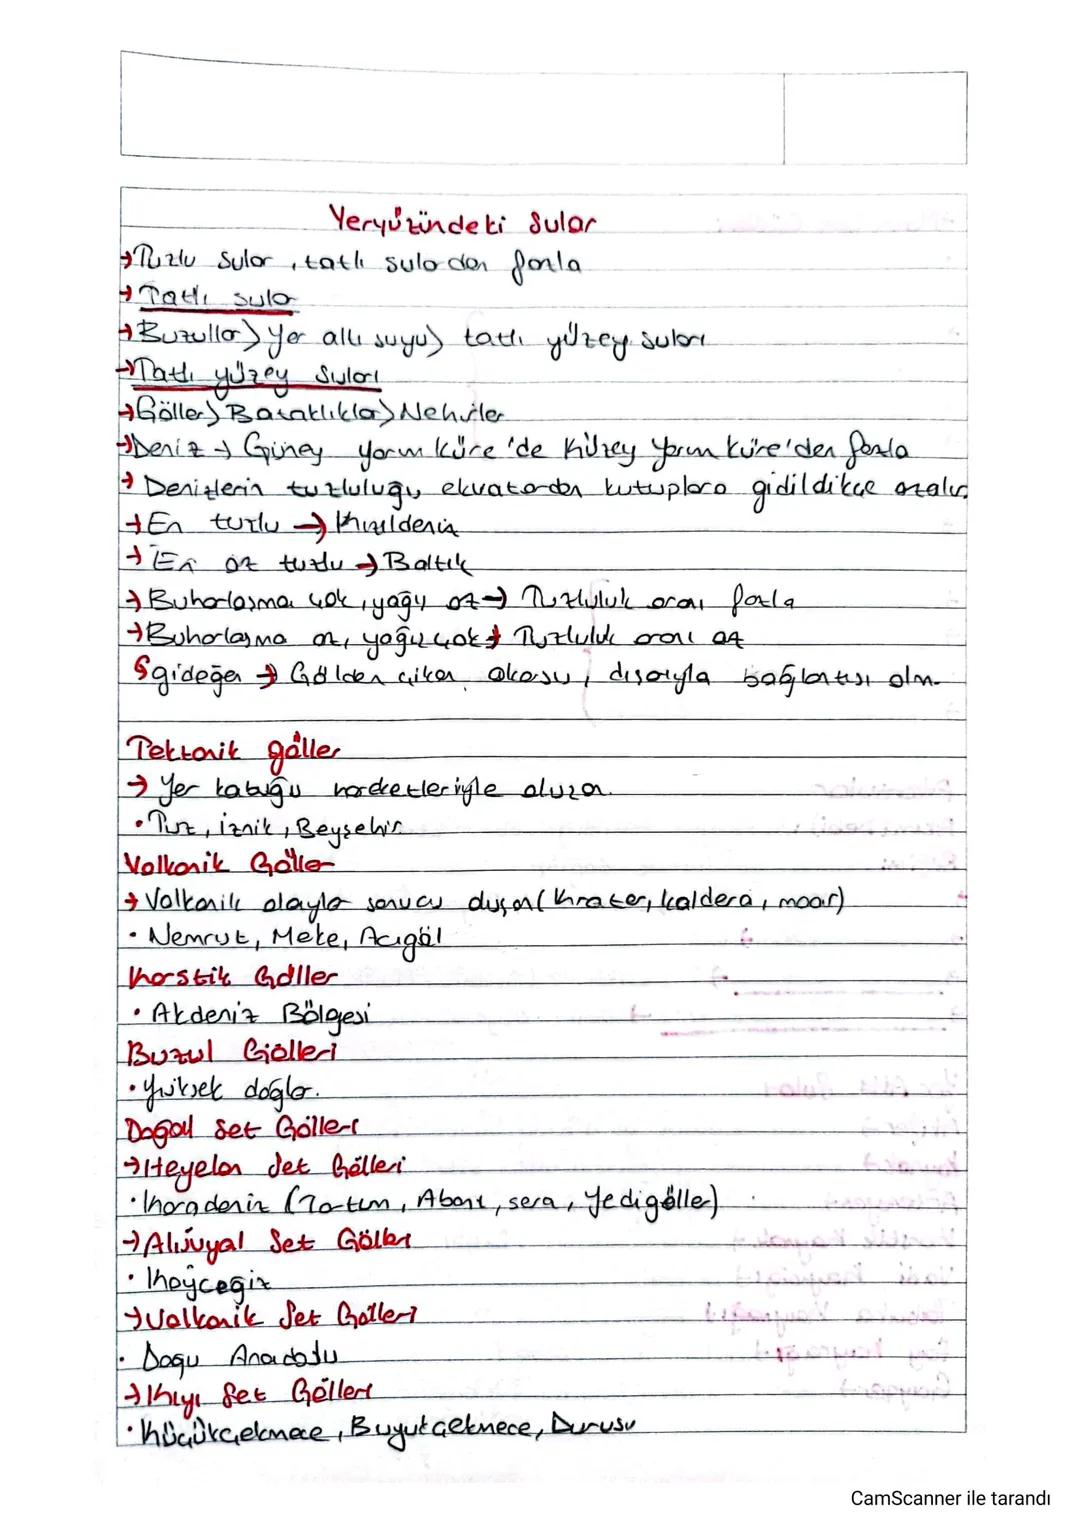 Yeryüzündeki Sular
→Tuzlu sular, tatlı sulardan fazla
→Tatlı sular
→Buzullar > Yer altı suyu > tatlı yüzey suları
→Tatlı yüzey suları
→Göller > Bataklıklar > Nehirler
→Deniz → Güney yarım küre'de Kuzey yarım küre'den fazla
→Denizlerin tuzluluğu, ekvatordan kutuplara gidildikçe azalır.
→En tuzlu → Kızıldeniz
→En az tuzlu → Baltık
→Buharlaşma çok, yağış az → Tuzluluk oranı fazla
→Buharlaşma az, yağış çok → Tuzluluk oranı az
Ggideğen → Gölden çıkan akarsu, dışarıyla bağlantısı olan.
Tektonik göller
→ Yer kabuğu hareketleriyle oluşan.
• Tuz, iznik, Beyşehir
Volkanik Göller
→ Volkanik olaylar sonucu oluşan (Krater, kaldera, maar)
• Nemrut, Meke, Acıgöl
Karstik Göller
• Akdeniz Bölgesi
Buzul Gölleri
• Yüksek dağlar.
Doğal Set Gölleri
→Heyelan Set Gölleri
• Karadeniz (Tortum, Abant, sera, Yedigöller)
→Alüvyal Set Gölleri
• Köyceğiz
→Volkanik Set Gölleri
• Doğu Anadolu
→Kıyı Set Gölleri
• Küçükçekmece, Büyükçekmece, Durusu
CamScanner ile tarandı